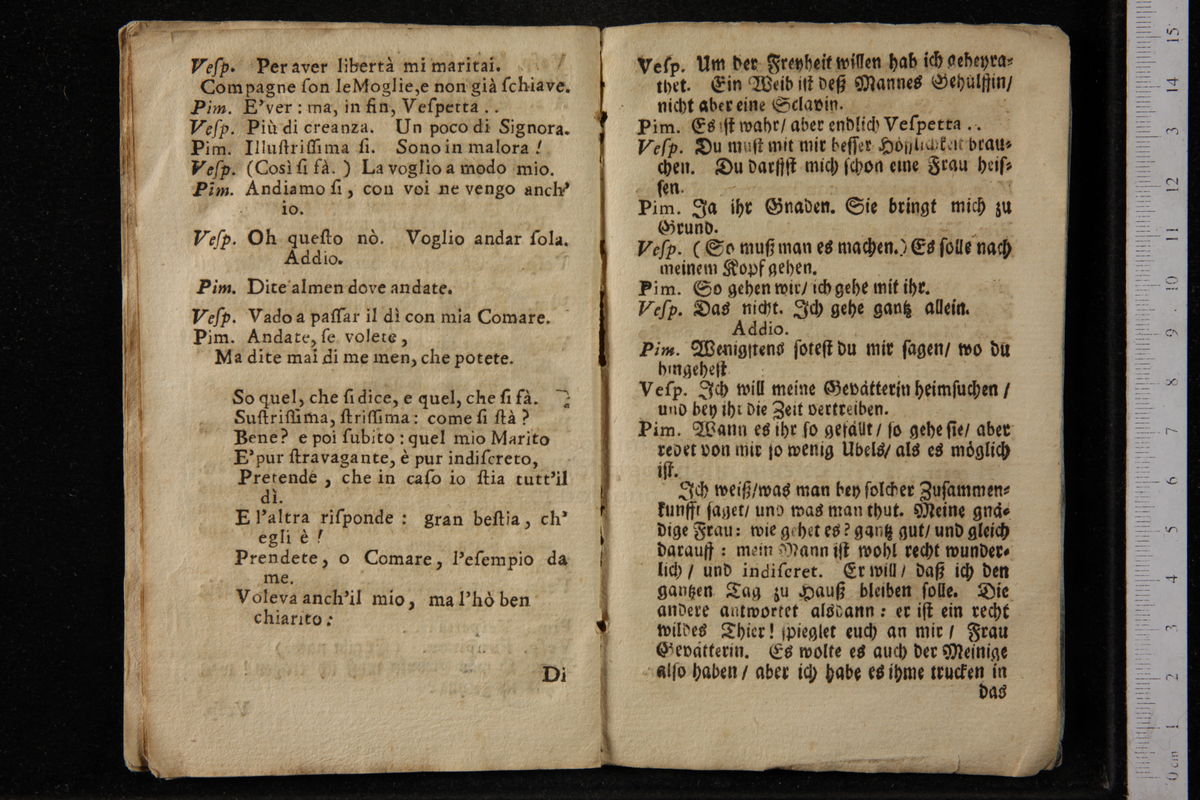 Veſp. Per aver libertà mi maritai.
Compagne ſon leMoglie,e non già ſchiave.
Pim. E'ver : ma, in fin, Veſpetta . .
Veſp. Più di creanza. Un poco di Signora.
Pim. Illuſtriſſima ſi. Sono in malora !
Veſp. (Così ſi fà. ) La voglio a modo mio.
Pim. Andiamo ſi, con voi ne vengo anch'
io.
Veſp. Oh queſto nò. Voglio andar ſola.
Addio.
Pim. Dite almen dove andate.
Veſp. Vado a paſſar il dì con mia Comare.
Pim. Andate, ſe volete,
Ma dite mai di me men, che potete.
So quel, che ſi dice, e quel, che ſi fà.
Suſtriſſima, ſtriſſima : come ſi ſtà ?
Bene? e poi ſubito : quel mio Marito
E'pur ſtravagante, è pur indiſcreto,
Pretende, che in caſo io ſtia tutt'il
dì.
E l'altra riſponde : gran beſtia, ch'
egli è !
Prendete, o Comare, l'eſempio da
me.
Voleva anch'il mio, ma l'hò ben
chiarito :
Di
Veſp. Um der Freyheit willen hab ich geheyra-
thet. Ein Weib iſt deß Mannes Gehülffin/
nicht aber eine Sclavin.
Pim. Es iſt wahr/ aber endlich Veſpetta . .
Veſp. Du muſt mit mir beſſer Höfflichkeit brau-
chen. Du darffſt mich ſchon eine Frau heiſ-
ſen.
Pim. Ja ihr Gnaden. Sie bringt mich zu
Grund.
Veſp. (So muß man es machen.) Es ſolle nach
meinem Kopf gehen.
Pim. So gehen wir/ ich gehe mit ihr.
Veſp. Das nicht. Ich gehe gantz allein.
Addio.
Pim. Wenigſtens ſoteſt du mir ſagen/ wo du
hingeheſt
Veſp. Ich will meine Gevätterin heimſuchen /
und bey ihr die Zeit vertreiben.
Pim. Wann es ihr ſo gefällt/ ſo gehe ſie/ aber
redet von mir ſo wenig Ubels/ als es möglich
iſt.
Ich weiß/was man bey ſolcher Zuſammen-
kunfft ſaget/ und was man thut. Meine gnä-
dige Frau : wie gehet es? gantz gut/ und gleich
darauff : mein Mann iſt wohl recht wunder-
lich/ und indiſcret. Er will/ daß ich den
gantzen Tag zu Hauß bleiben ſolle. Die
andere antwortet alsdann : er iſt ein recht
wildes Thier! ſpieglet euch an mir/ Frau
Gevätterin. Es wolte es auch der Meinige
alſo haben/ aber ich habe es ihme trucken in
das
15
14
13
12
11
10
9
8
7
6
5
4
3
2
1
0 cm